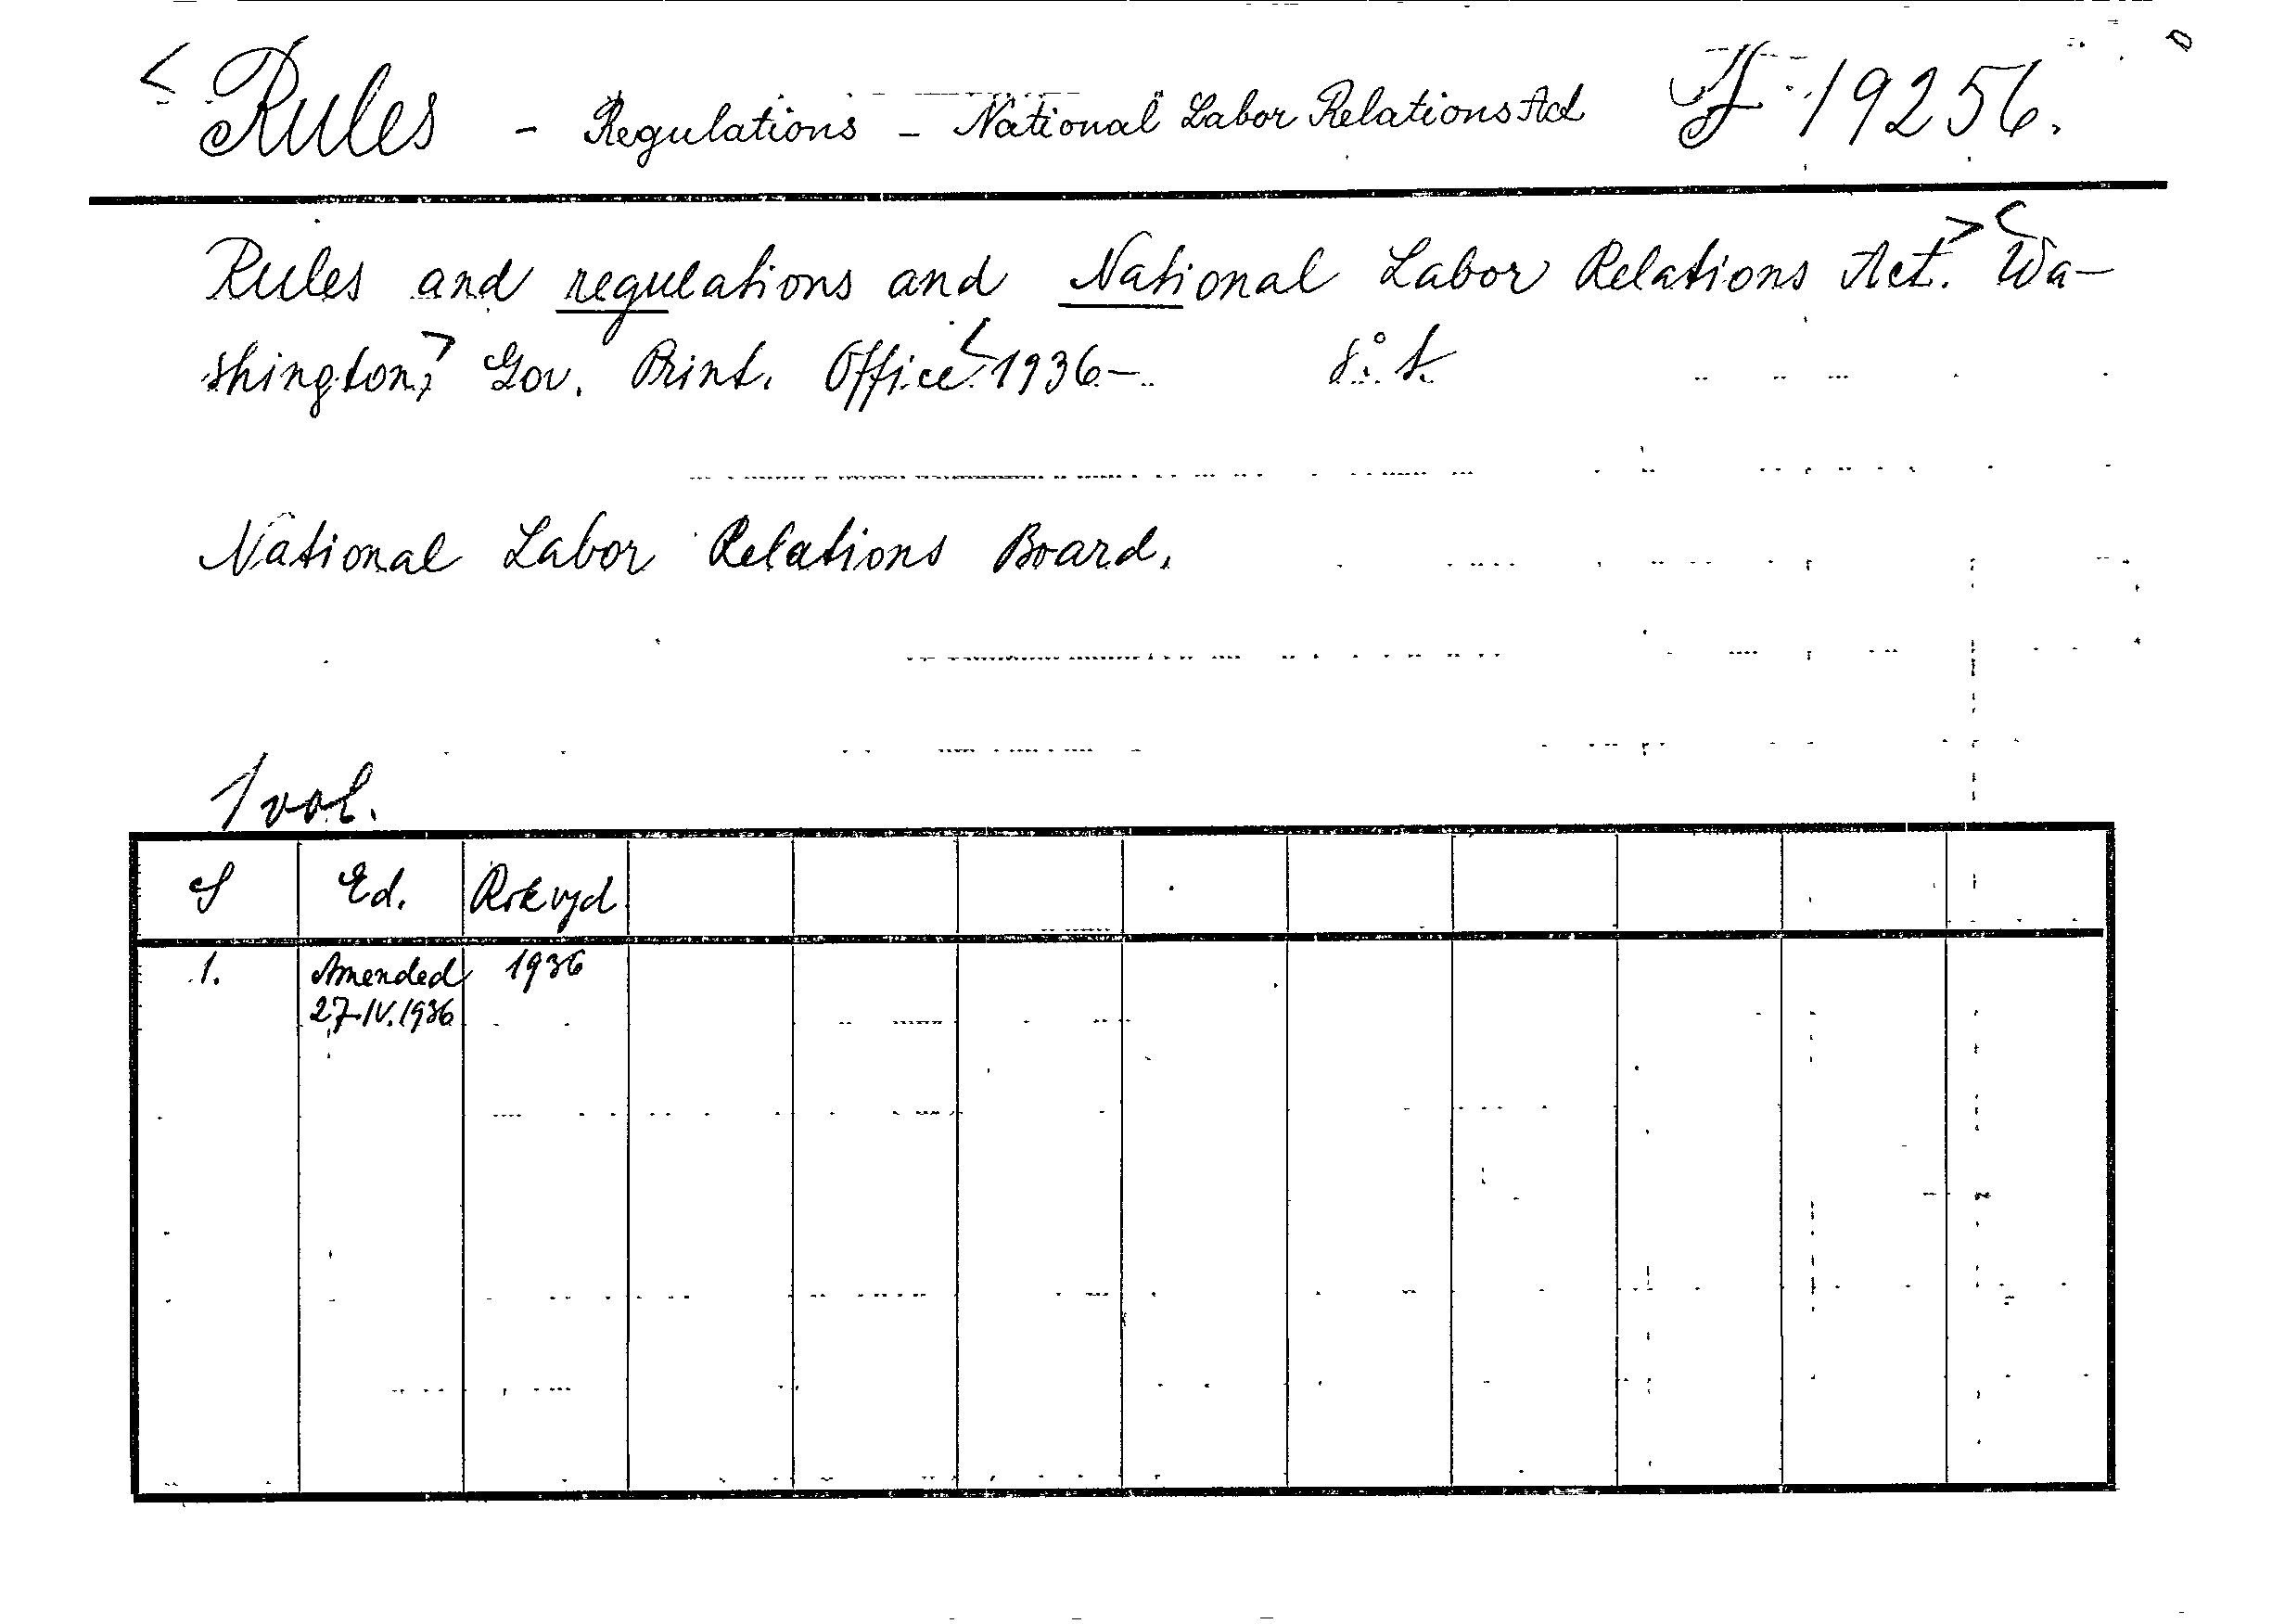 Rules - Regulations - National Labor Relations Act If 19256.
Rules and regulations and National Labor Relations Act. Wa-
shington, Gov. Print. Office 1936-. 8° t.
National Labor Relations Board.
1 vol.
S Ed. Rok vyd
1. Amended 1936
27.IV.1936